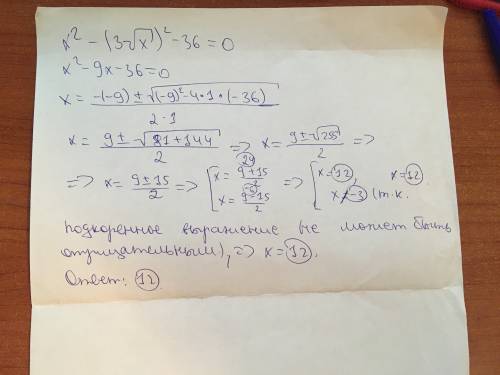 x² - (3√x)² - 36 = 0
x² - 9x - 36 = 0
x = -(-9) ± √(-9)² - 4·1·(-36) / 2·1
x = 9 ± √81 + 144 / 2 => x = 9 ± √225 / 2 =>
=> x = 9 ± 15 / 2 => [ x = 9 + 15 / 2 x = 9 - 15 / 2 => [ x = 12, x ≠ -3 (т.к. x = 12
подкоренное выражение не может быть
отрицательным), => x = 12.
Ответ: 12